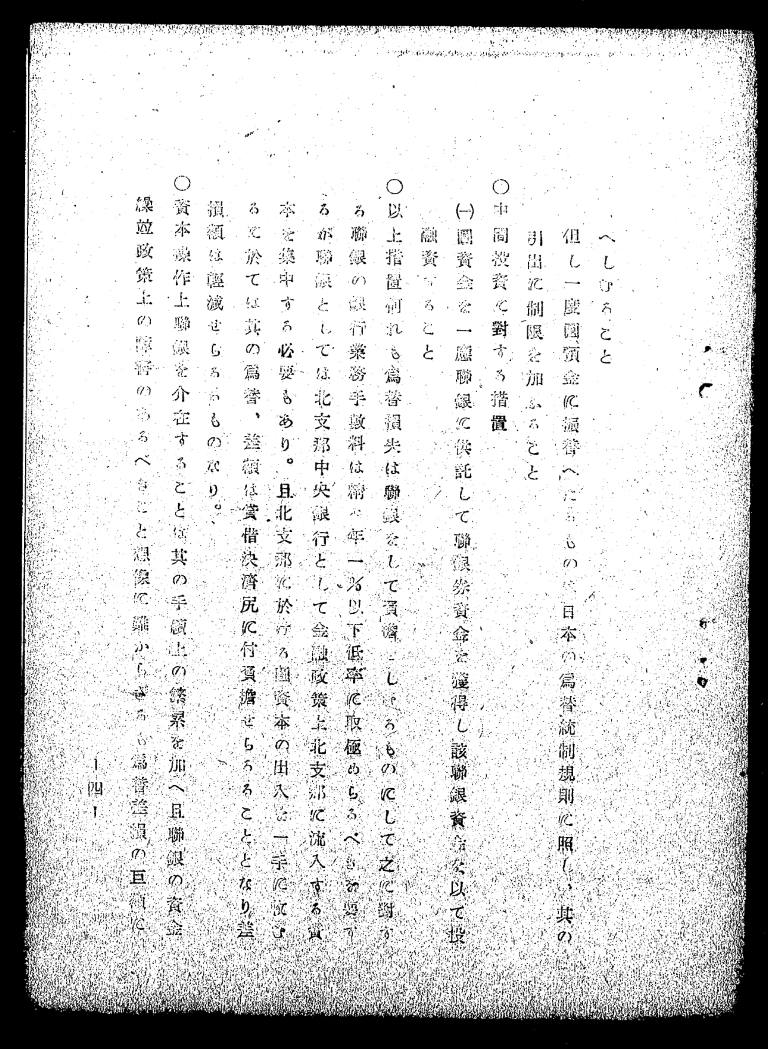 へしむること
但し一度圓預金に振替へたるものは日本の爲替統制規則に照し、其の
引出に制限を加ふること
〇中間投資に對する措置
㈠圓資金を一應聯銀に供託して聯銀券資金を獲得し該聯銀資金を以て投
融資すること
〇以上措置何れも爲替損失は聯銀をして負擔せしむるものにして之に對す
る聯銀の銀行業務手數料は精々年一%以下低率に取極めらるべきを要す
るが聯銀としては北支那中央銀行として金融政策上北支那に流入する資
本を集中する必要もあり。且北支那に於ける圓資本の出入を一手に收む
るに於ては其の爲替、差額は貸借決濟尻に付負擔せらるることとなり差
損額は輕減せらるるものなり。
〇資本操作上聯銀を介在することは其の手續上の繁累を加へ且聯銀の資金
操竝政策上の障害のあるべきこと想像に難からざるも爲替差損の巨額に
ー四ー